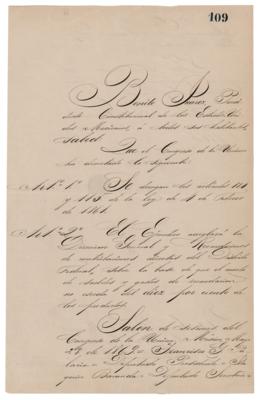 109
Benito Juarez, Presi
dente Constitucional de los Estados Uni
dos Mexicanos, á todos sus habitantes,
sabed:
Que el Congreso de la Union
ha decretado lo siguiente:
Art. 1º Se derogan los artículos
y 113 de la ley de 4 de Febrero
de 1861.
Art. 2º El Ejecutivo arreglará la
Direccion General y Recaudaciones
de contribuciones directas del Distrito
Federal, sobre la base de que el monto
de sueldos y gastos de recaudacion
no esceda del diez por ciento de
los productos.
Salon de sesiones del
Congreso de la Union, Mexico, Mayo
Diputado Presidente
Baranda Diputado Secretario